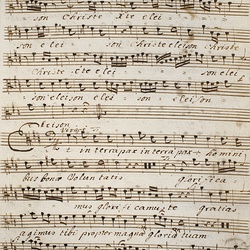 son Christe Xte elei
son elei son Christe eleison Christe
Christe Xte elei
son eleison elei son elei
son
eleison
Et in terra pax in terra pax homini
bus bonæ Voluntatis glorifica
mus glorificamus te gratias
agimus tibi propter magnã gloriã tuam